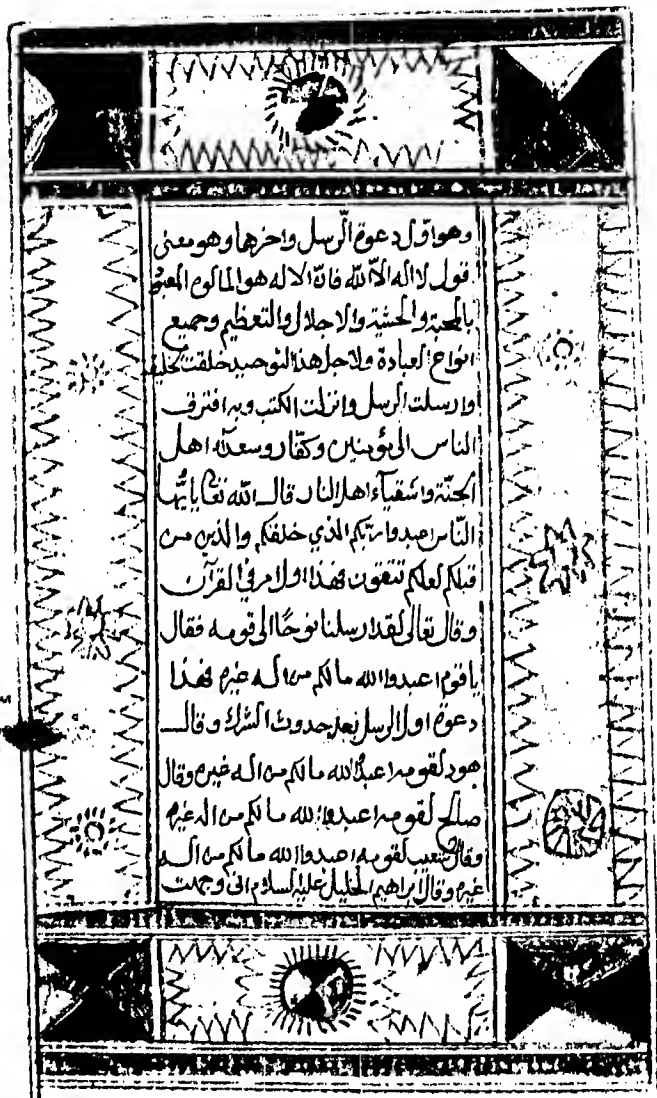 وهو اوّل دعوة الرّسل واخرها وهو معنى
قول لا اله الاّ الله فانّ الاله هو المالوه المعبود
بالمحبّة والخشية والاجلال والتعظيم وجميع
انواع العبادة ولاجل هذا التوحيد خلقت الخليقة
وارسلت الرسل وانزلت الكتب وبه افترق
الناس الى مؤمنين وكفّار وسعدآء اهل
الجنّة واشقيآء اهل النار قال الله تعالى يا ايّها
النّاس اعبدوا ربّكم الذي خلقكم والذين من
قبلكم لعلكم تتقون فهذا اول امر في القرآن
وقال تعالى لقد ارسلنا نوحًا الى قومه فقال
يا قوم اعبدوا الله ما لكم من اله غيره فهذا
دعوة اول الرسل بعد حدوث الشرك وقال
هود لقومه اعبدوا الله ما لكم من اله غيره وقال
صالح لقومه اعبدوا الله ما لكم من اله غيره
وقال شعيب لقومه اعبدوا الله ما لكم من اله
غيره وقال ابراهيم الخليل عليه السلام انى وجهت